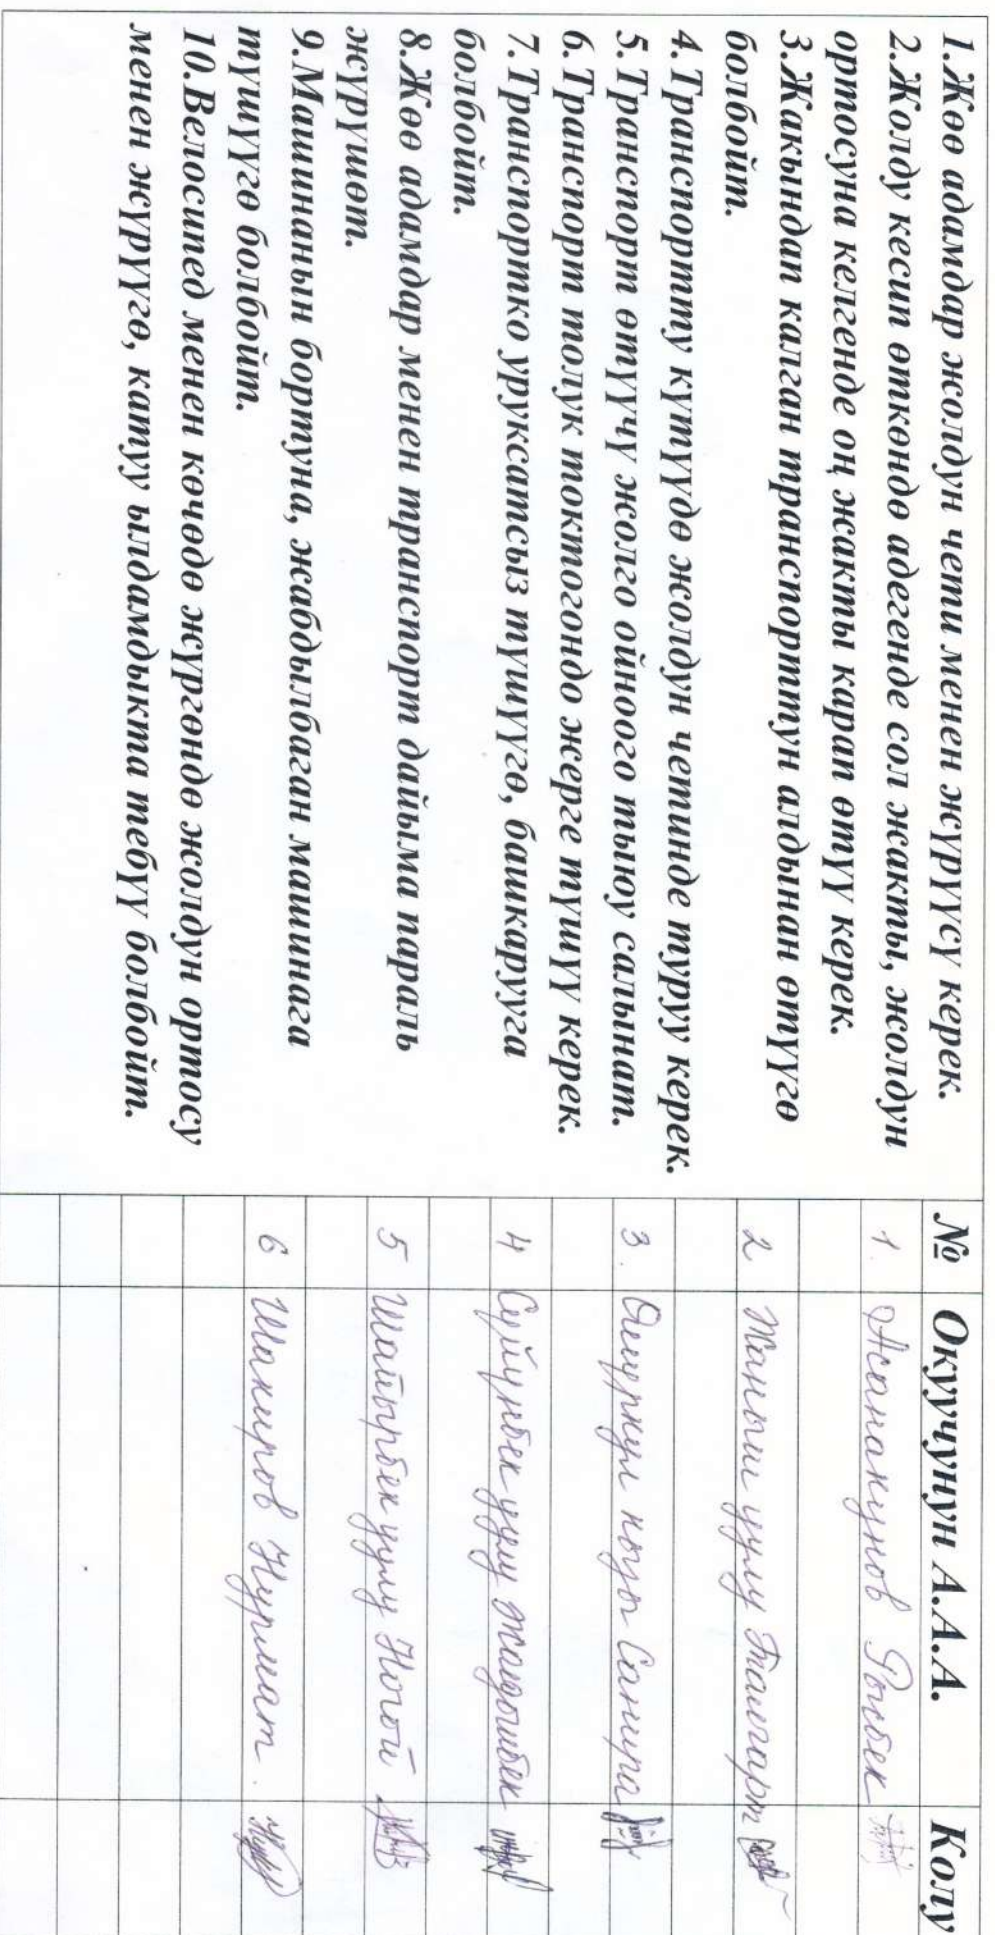 1.Жөө адамдар жолдун чети менен жүрүүсү керек.
2.Жолду кесип өткөндө адегенде сол жакты, жолдун
ортосуна келгенде оң жакты карап өтүү керек.
3.Жакындап калган транспорттун алдынан өтүүгө
болбойт.
4.Транспортту күтүүдө жолдун четинде туруу керек.
5.Транспорт өтүүчү жолго ойноого тыюу салынат.
6.Транспорт толук токтогондо жерге түшүү керек.
7.Транспортко уруксатсыз түшүүгө, башкарууга
болбойт.
8.Жөө адамдар менен транспорт дайыма параль
жүрүшөт.
9.Машинанын бортуна, жабдылбаган машинага
түшүүгө болбойт.
10.Велосипед менен көчөдө жүргөндө жолдун ортосу
менен жүрүүгө, катуу ылдамдыкта тебүү болбойт.
№ Окуучунун А.А.А. Колу
1. Асанакунов Рыкбек
2 Жаныш уулу Таигарт
3. Ошуркул кызы Санира
4 Сүйүнбек уулу Жолдошбек
5 Шайырбек уулу Ногой
6 Шакиров Нурмат